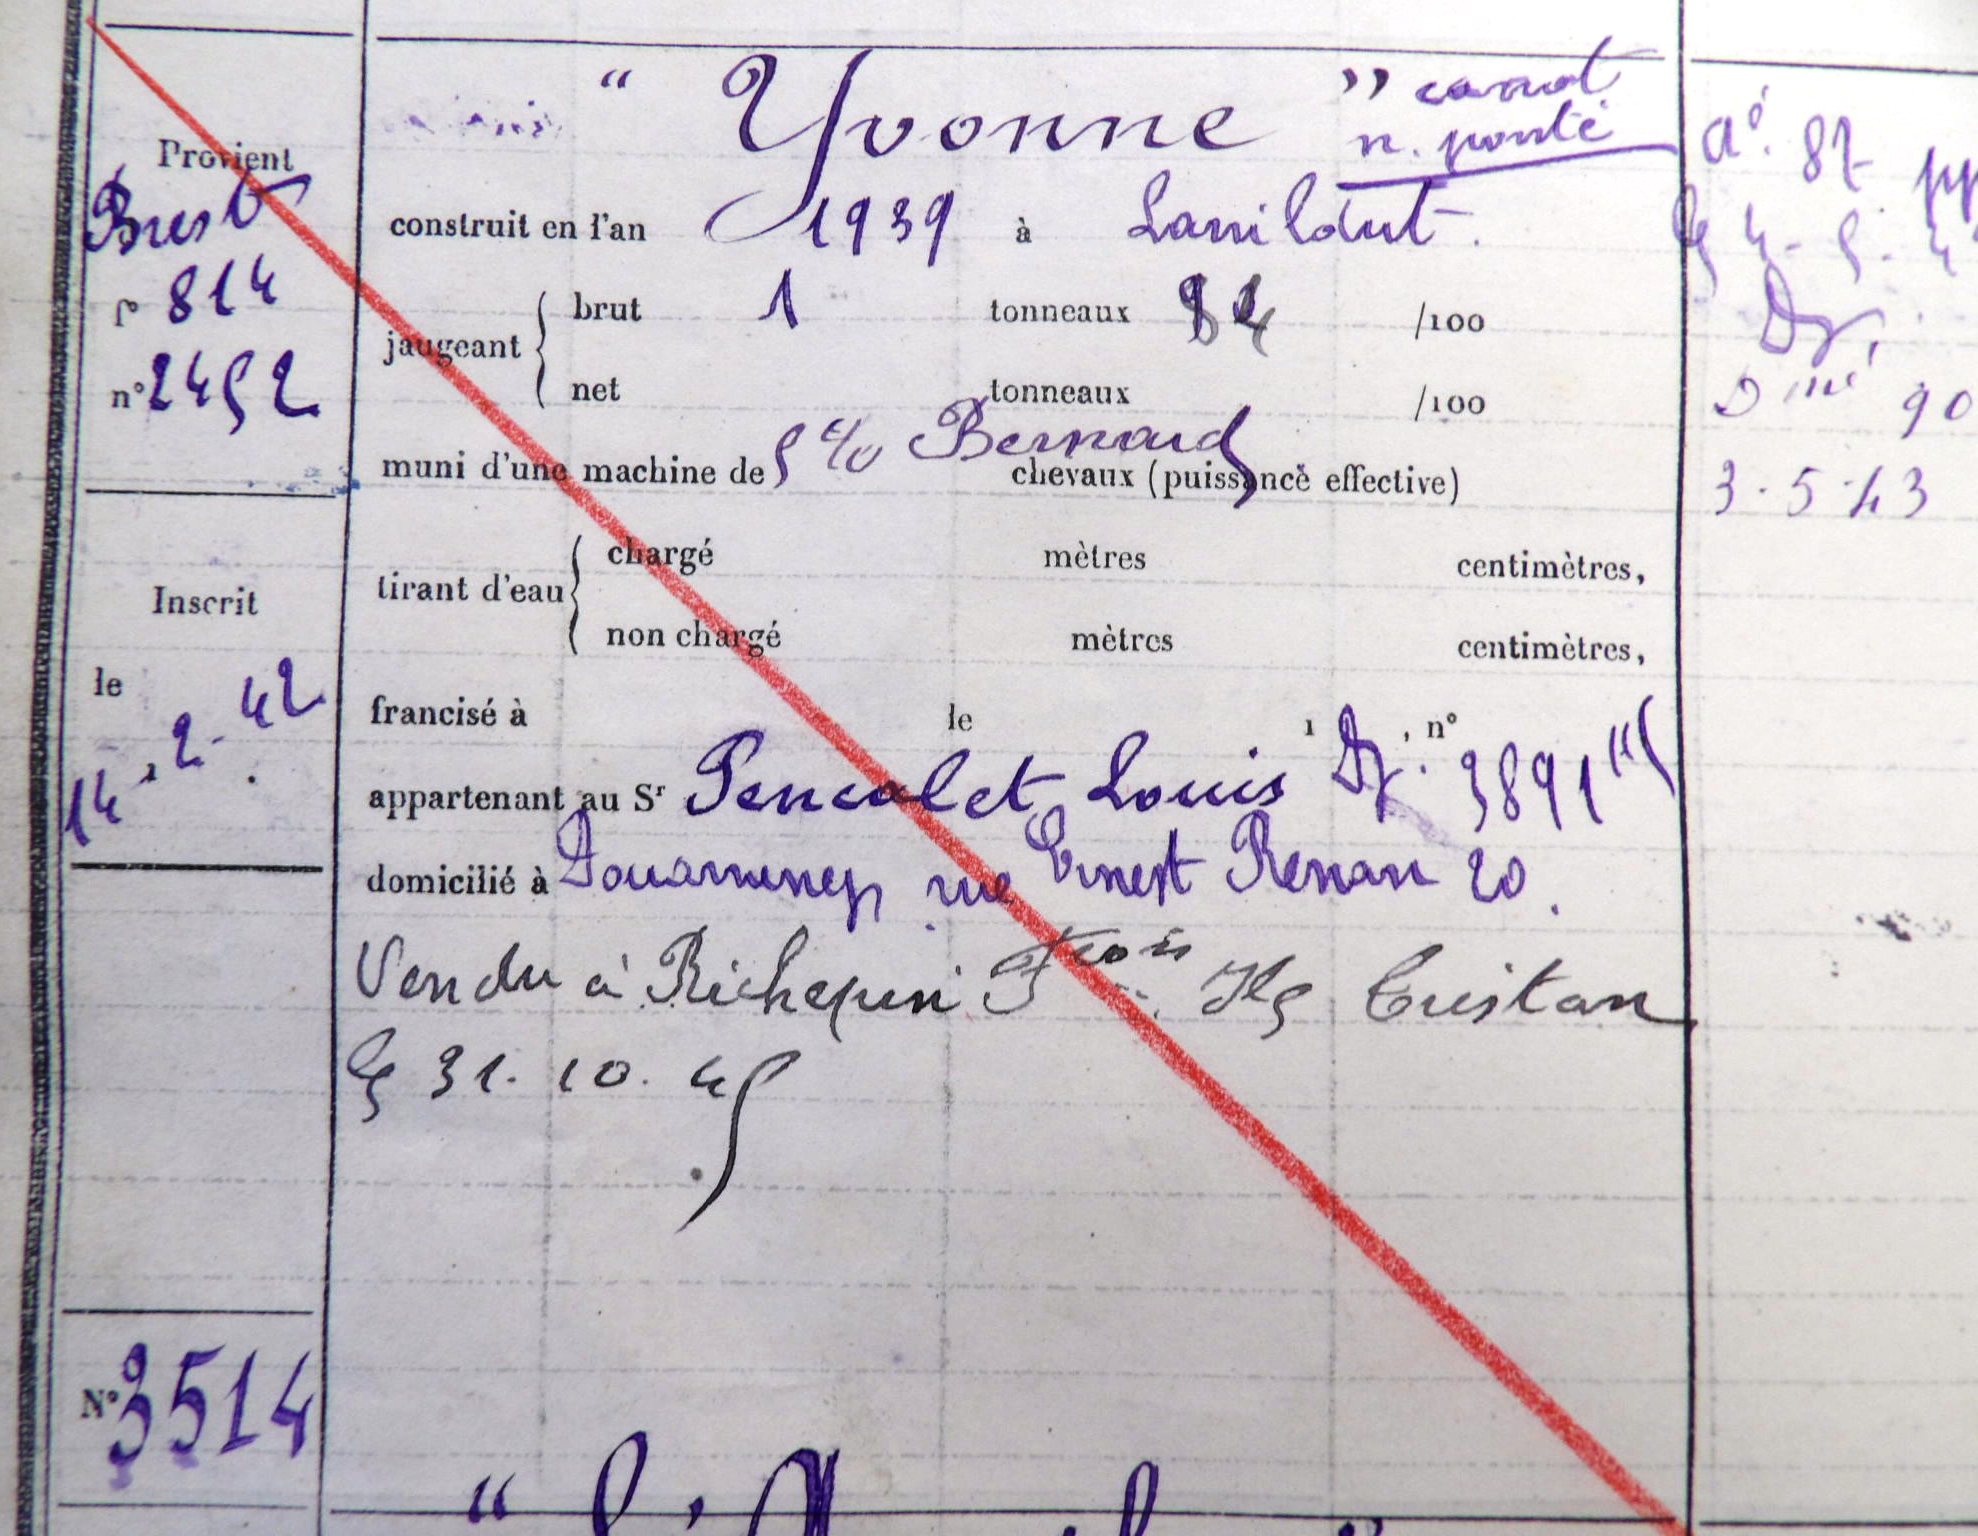 Provient
Brest
f° 814
n° 2452
Inscrit
le
14.2.42
N° 3514
" Yvonne " canot
n. ponté
construit en l'an 1939 à Lanildut.
jaugeant brut 1 tonneaux /100
net tonneaux /100
muni d'une machine de 5 c/v Bernard chevaux (puissance effective)
tirant d'eau chargé mètres centimètres,
non chargé mètres centimètres,
francisé à le 1 , n°
appartenant au Sr Pencalet Louis Dz. 3891
domicilié à Douarnenez rue Ernest Renan 20.
Vendu à Richepin Fcois Ile Tristan
le 31.10.45
a° 87
Dz.
D mé 90
3.5.43